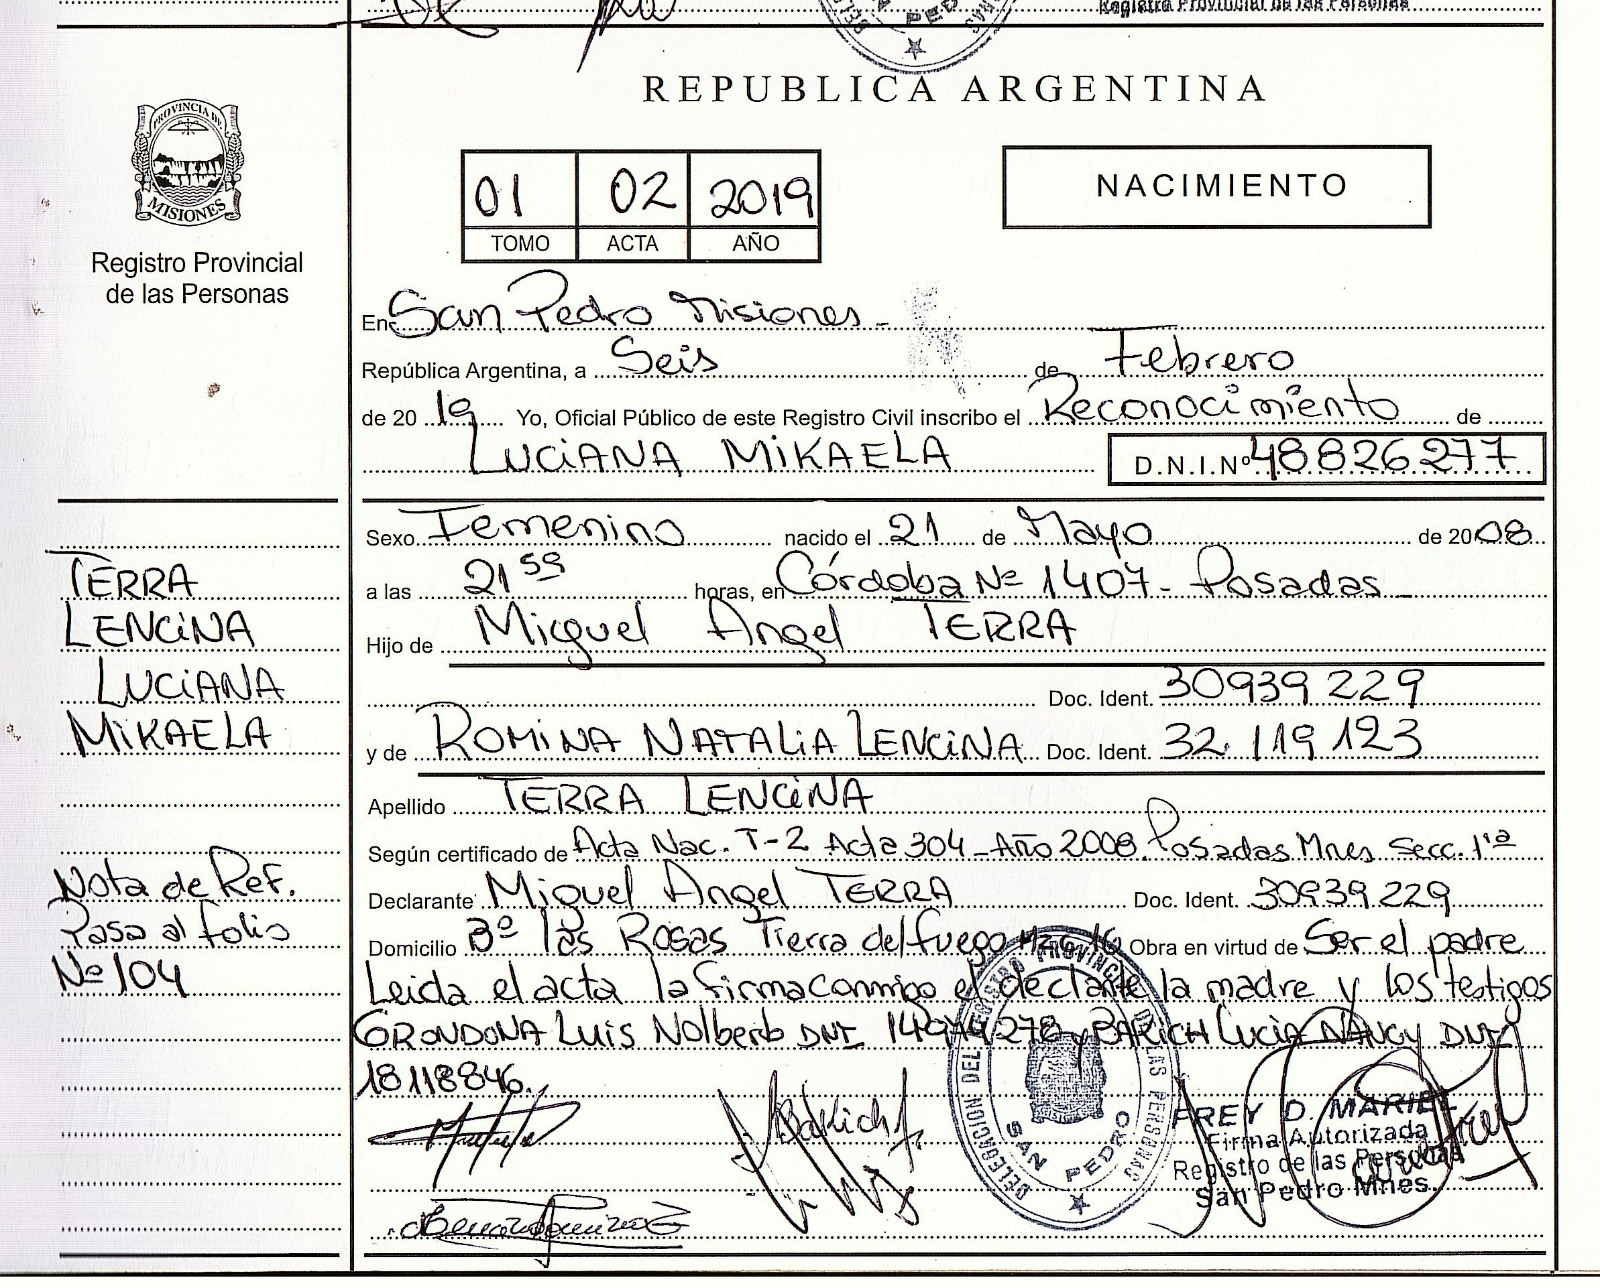 Registro Provincial de las Personas
PROVINCIA DE
MISIONES
Registro Provincial
de las Personas
REPUBLICA ARGENTINA
01 02 2019
TOMO ACTA AÑO
NACIMIENTO
En San Pedro Misiones.-
República Argentina, a Seis de Febrero
de 2019 Yo, Oficial Público de este Registro Civil inscribo el Reconocimiento de
LUCiANA MiKAELA D.N.I.Nº 48826277
Sexo Femenino nacido el 21 de Mayo de 2008
a las 21 59 horas, en Córdoba Nº 1407 - Posadas -
Hijo de Miguel Angel TERRA
Doc. Ident. 30939229
y de ROMiNA NATALiA LENCiNA Doc. Ident. 32.119.123
Apellido TERRA LENCiNA
Según certificado de Acta Nac. T-2 Acta 304 - Año 2008. Posadas Mnes Secc. 1ª
Declarante Miguel Angel TERRA Doc. Ident. 30939229
Domicilio Bº las Rosas Tierra del fuego Mz 6 16 Obra en virtud de Ser el padre
Leida el acta la firma conmigo el declarante la madre y los testigos
GRONDONA LUIS Nolberto DNI 14974278 y BARICH LUCIA NANCY DNI
18118846.
TERRA
LENCiNA
LUCiANA
MiKAELA
Nota de Ref.
Pasa al folio
Nº 104
DELEGACION DEL REGISTRO PROVINCIAL DE LAS PERSONAS
SAN PEDRO
FREY D. MARIEL
Firma Autorizada
Registro de las Personas
San Pedro Mnes.